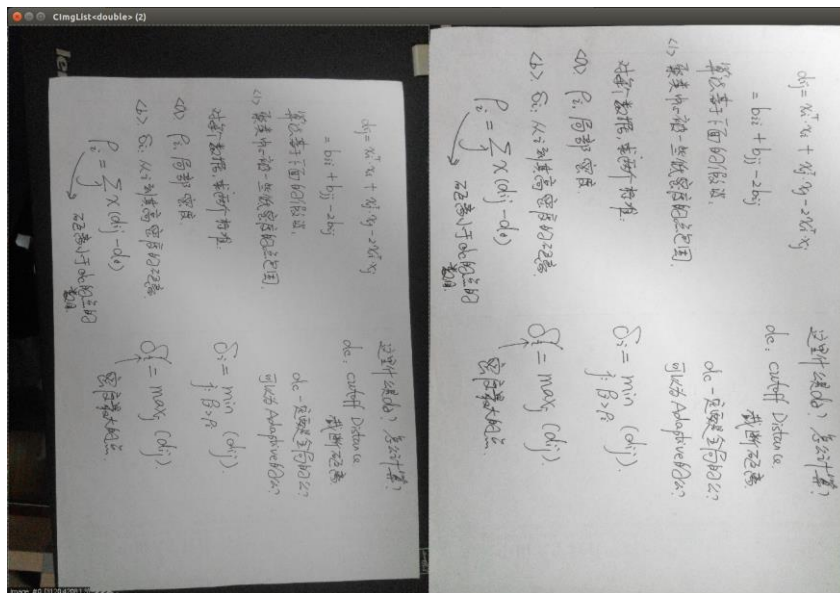 CImgList<double> (2)
dij = xiᵀxi + xjᵀxj - 2xiᵀxj
= bii + bjj - 2bij
算法基于下面的假设.
<1> 聚类中心被一些低密度的点包围.
对每个数据, 求两个特征.
<a> ρi, 局部密度.
<b> δi, 从i到其高密度的距离.
ρi = Σj χ(dij - dc)
距离小于dc的点的
数目.
这里什么是dc? 怎么计算?
dc: cutoff Distance
截断距离
dc一定要是全局的么?
可以为Adaptive的么?
δi = min (dij).
j: ρj > ρi
δi = maxj (dij).
密度最大的点.
dij = xiᵀxi + xjᵀxj - 2xiᵀxj
= bii + bjj - 2bij
算法基于下面的假设.
<1> 聚类中心被一些低密度的点包围.
对每个数据, 求两个特征.
<a> ρi, 局部密度.
<b> δi, 从i到其高密度的距离.
ρi = Σj χ(dij - dc)
距离小于dc的点的
数目.
这里什么是dc? 怎么计算?
dc: cutoff Distance
截断距离
dc一定要是全局的么?
可以为Adaptive的么?
δi = min (dij).
j: ρj > ρi
δi = maxj (dij).
密度最大的点.